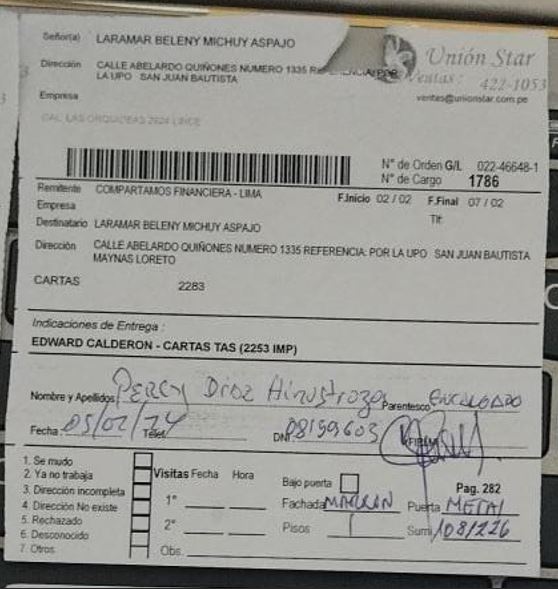 Señor(a) LARAMAR BELENY MICHUY ASPAJO
Dirección CALLE ABELARDO QUIÑONES NUMERO 1335
LA UPO SAN JUAN BAUTISTA
Empresa
CAL LAS ORQUIDEAS 2624 LINCE
Unión Star
Ventas: 422-1053
ventas@unionstar.com.pe
N° de Orden G/L 022-46648-1
N° de Cargo 1786
Remitente COMPARTAMOS FINANCIERA - LIMA F.Inicio 02/02 F.Final 07/02
Empresa Tlf:
Destinatario LARAMAR BELENY MICHUY ASPAJO
Dirección CALLE ABELARDO QUIÑONES NUMERO 1335 REFERENCIA: POR LA UPO SAN JUAN BAUTISTA
MAYNAS LORETO
CARTAS 2283
Indicaciones de Entrega :
EDWARD CALDERON - CARTAS TAS (2253 IMP)
Nombre y Apellidos Percy Diaz Hinostroza Parentesco ENCARGADO
Fecha 05/02/24 Telef. DNI 08199603 FIRMA
1. Se mudo
2. Ya no trabaja
3. Dirección incompleta
4. Dirección No existe
5. Rechazado
6. Desconocido
7. Otros
Visitas Fecha Hora
1°
2°
Obs.
Bajo puerta Pag. 282
Fachada MARRON Puerta METAL
Pisos 1 Sumi